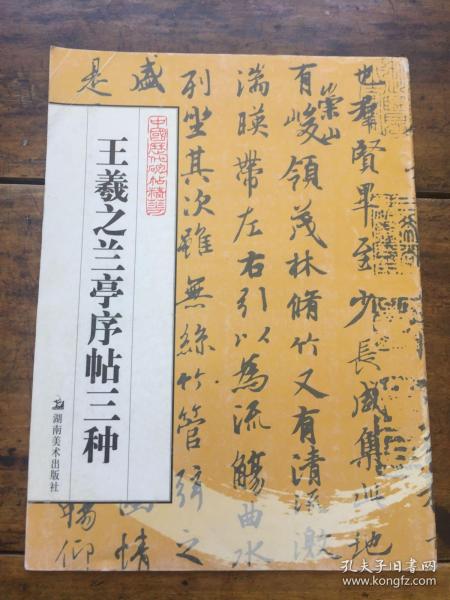 中國歷代碑帖精華
王羲之兰亭序帖三种
湖南美术出版社
也群賢畢至少長咸集此地
有崇山峻領茂林脩竹又有清流激
湍暎帶左右引以為流觴曲水
列坐其次雖無絲竹管弦之
盛
幽情
是
暢仰
孔夫子旧书网
www.kongfz.com